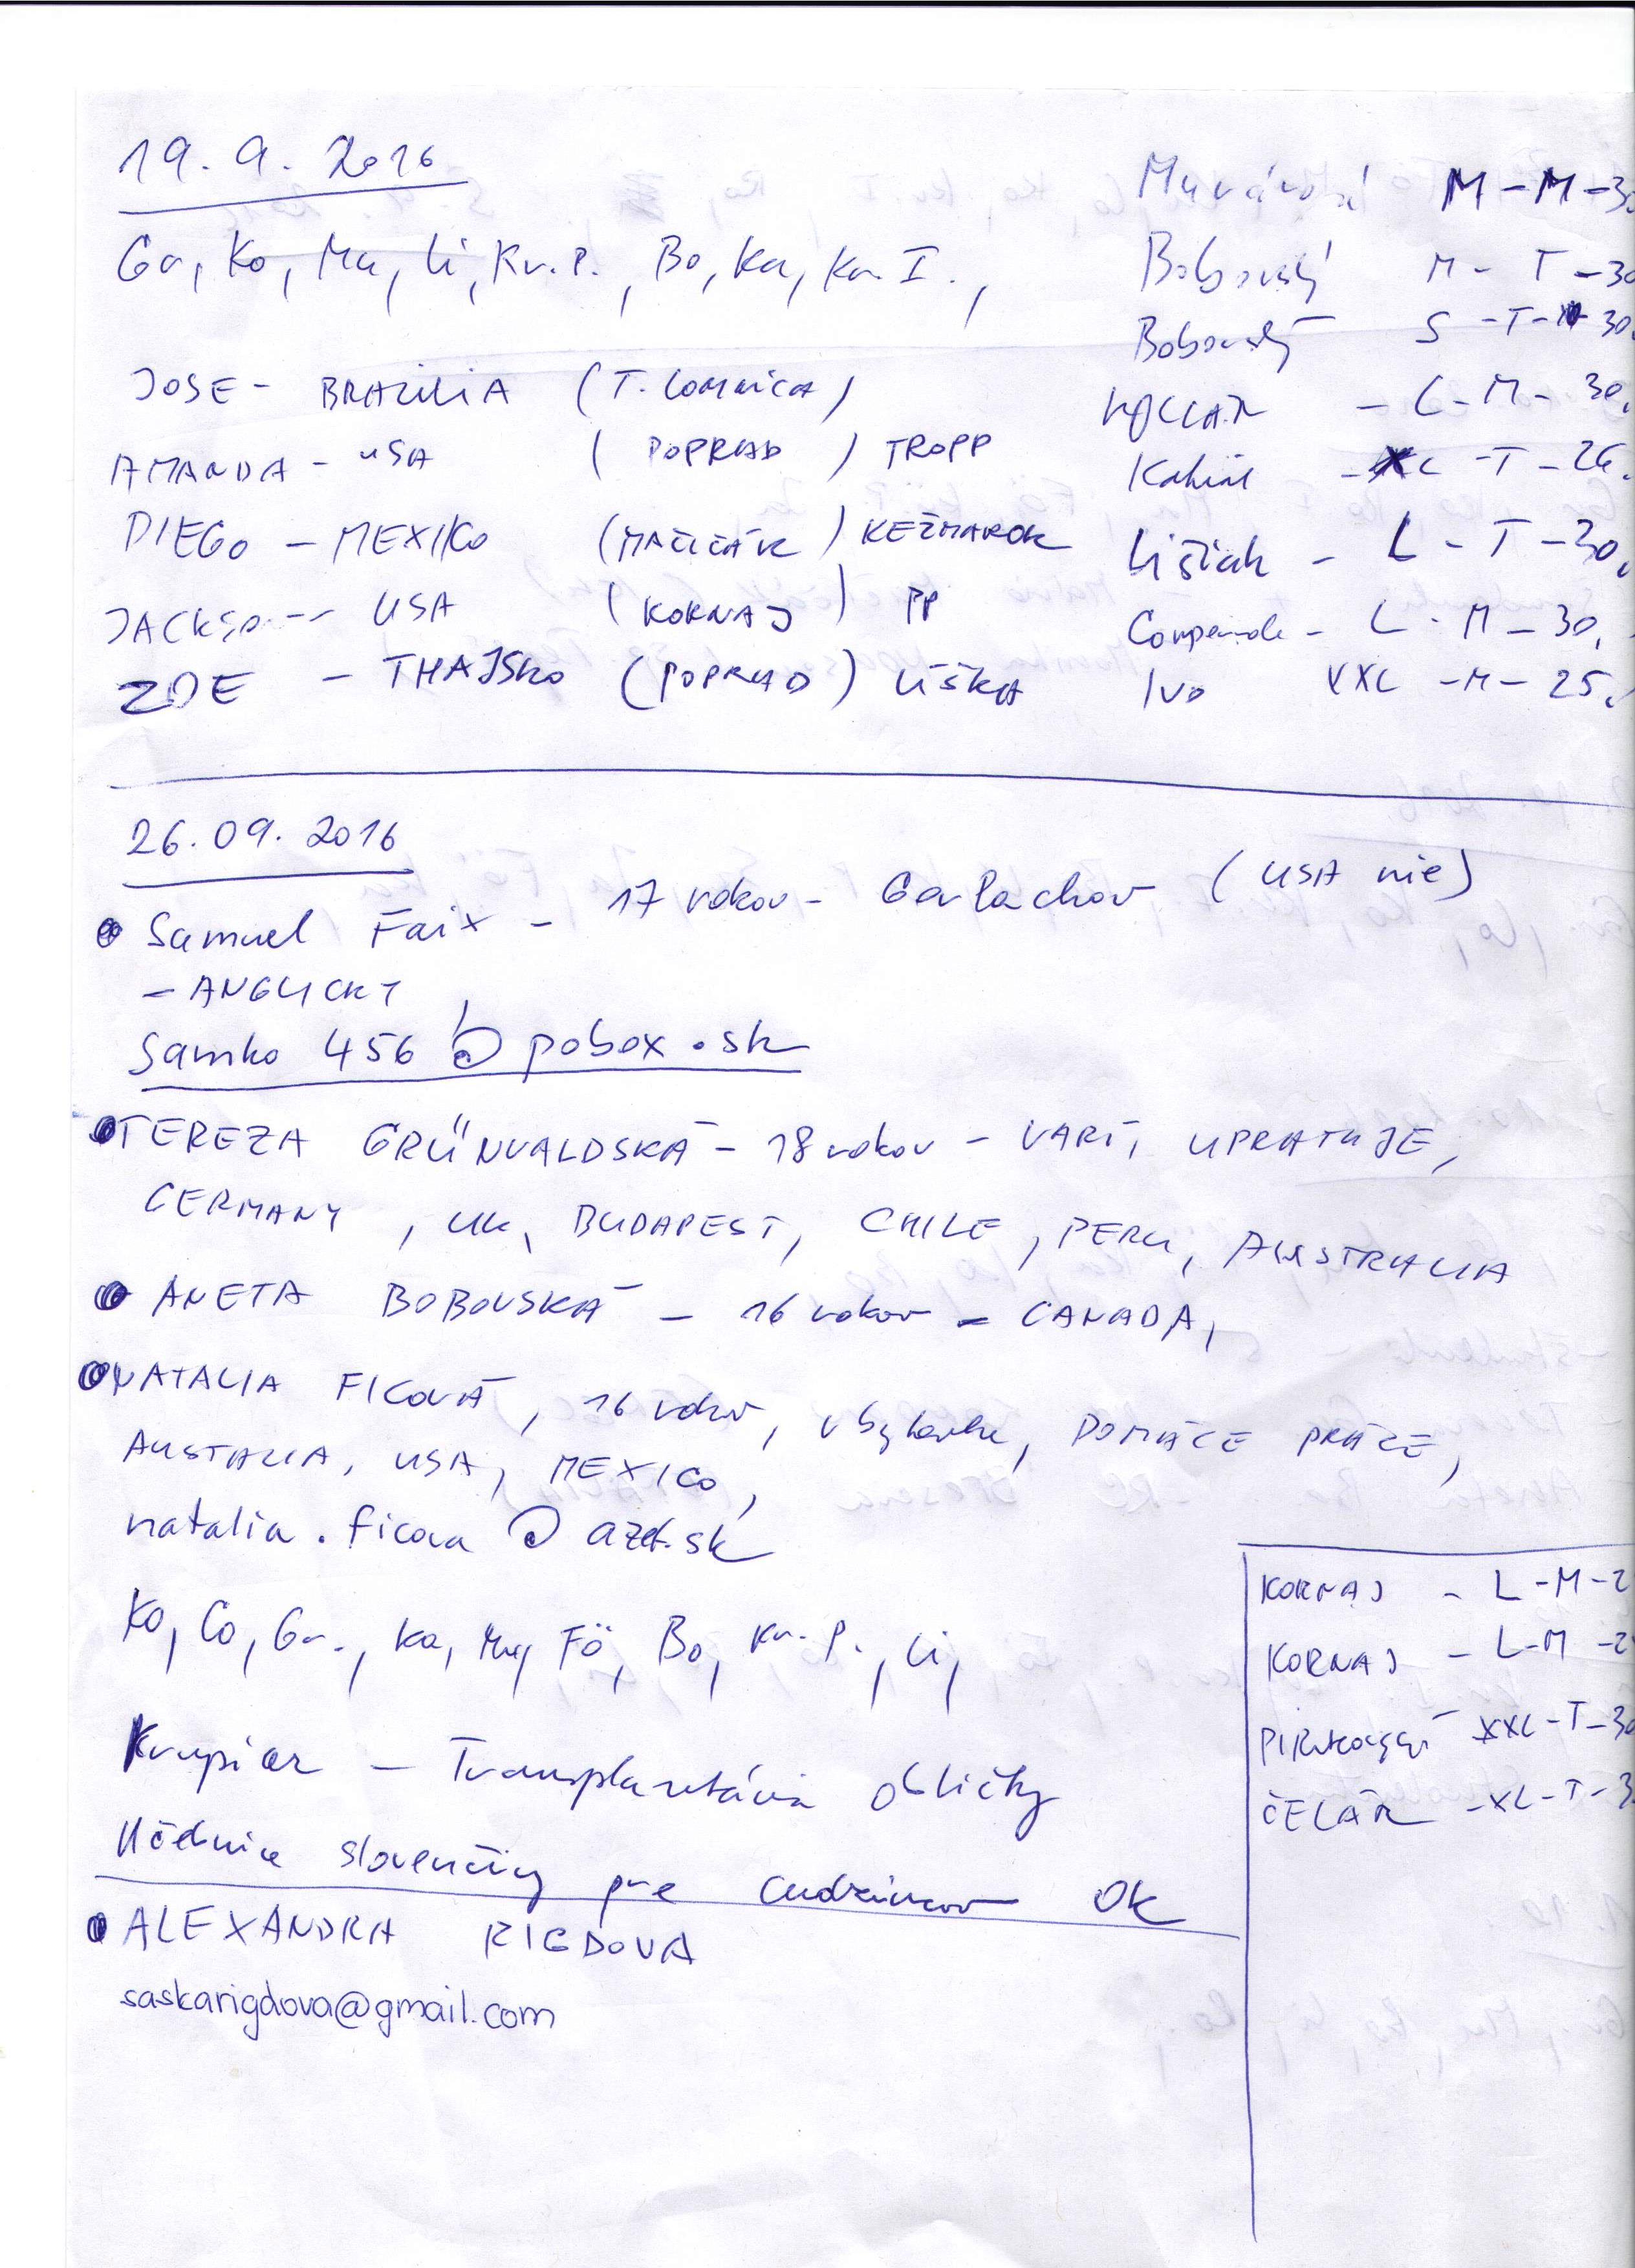 19. 9. 2016
Gr, Ko, Mu, Li, Kr. P., Bo, Ka, Kr. I.,
JOSE - BRAZILIA (T. LOMNICA)
AMANDA - USA (POPRAD) TROPP
DIEGO - MEXIKO (MAČIČÁK) KEŽMAROK
JACKSO-- USA (KORNAJ) PP
ZOE - THAJSKO (POPRAD) LIŠKA
M - M - 30
Bobovský M - T - 30
Bobovský S - T - 30,
KOLLÁR - L - M - 30,
XL - T - 26.
Lištiak - L - T - 30,
- L - M - 30,
Ivo XXL - M - 25,
26. 09. 2016
Samuel Faix - 17 rokov - Gerlachov (USA nie)
- ANGLICKY
Samko 456 @ pobox.sk
TEREZA GRÜNVALDSKÁ - 18 rokov - VARÍ, UPRATUJE,
GERMANY, UK, BUDAPEST, CHILE, PERU, AUSTRALIA
ANETA BOBOVSKÁ - 16 rokov - CANADA,
NATALIA FICOVÁ, 16 rokov, DOMÁCE PRÁCE,
AUSTALIA, USA, MEXICO,
natalia.ficova @ azet.sk
Ko, Co, Gr., Ka, Mu, Fö, Bo, Kr. P., Li,
Krupiar - Transplantácia obličky
Učebnice slovenčiny pre cudzincov OK
ALEXANDRA RIGDOVA
saskarigdova@gmail.com
KORNAJ - L - M - 2
KORNAJ - L - M - 2
XXL - T - 30
ČELÁR - XL - T - 3